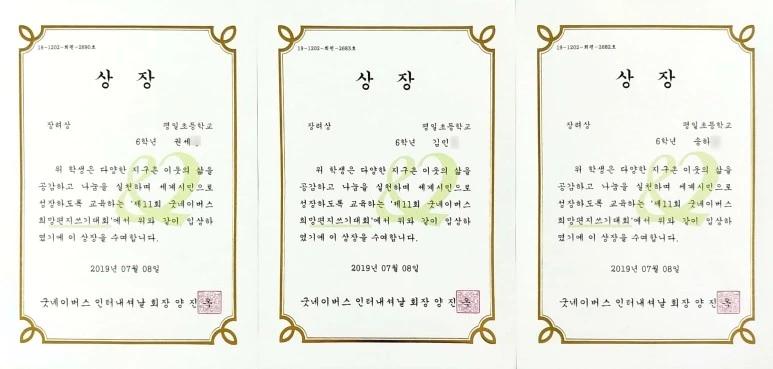 19-1202-희편-2690호
상 장
장려상 평일초등학교
6학년 권세
위 학생은 다양한 지구촌 이웃의 삶을
공감하고 나눔을 실천하며 세계시민으로
성장하도록 교육하는 '제11회 굿네이버스
희망편지쓰기대회'에서 위와 같이 입상하
였기에 이 상장을 수여합니다.
2019년 07월 08일
굿네이버스 인터내셔날 회장 양 진
19-1202-희편-2683호
상 장
장려상 평일초등학교
6학년 김민
위 학생은 다양한 지구촌 이웃의 삶을
공감하고 나눔을 실천하며 세계시민으로
성장하도록 교육하는 '제11회 굿네이버스
희망편지쓰기대회'에서 위와 같이 입상하
였기에 이 상장을 수여합니다.
2019년 07월 08일
굿네이버스 인터내셔날 회장 양 진
19-1202-희편-2682호
상 장
장려상 평일초등학교
6학년 송하
위 학생은 다양한 지구촌 이웃의 삶을
공감하고 나눔을 실천하며 세계시민으로
성장하도록 교육하는 '제11회 굿네이버스
희망편지쓰기대회'에서 위와 같이 입상하
였기에 이 상장을 수여합니다.
2019년 07월 08일
굿네이버스 인터내셔날 회장 양 진